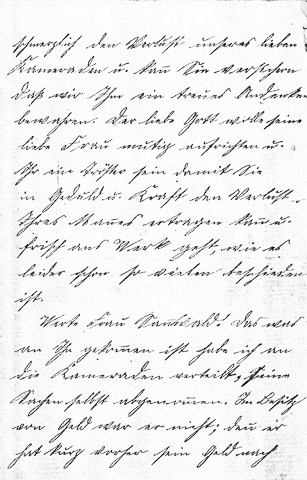 schmerzlich den Verlust unseres lieben
Kameraden u. kann Sie versichern
daß wir Ihm ein treues Andenken
bewahren. Der liebe Gott wolle seine
liebe Frau mutig aufrichten u.
Ihr ein Tröster sein damit Sie
in Geduld u. Kraft den Verlust
Ihres Mannes ertragen kann u.
frisch ans Werk geht, wie es
leider schon so vielen beschieden
ist.
Werte Frau Sannwald! Das was
an Ihn gekommen ist habe ich an
die Kameraden verteilt, seine
Sachen selbst abgenommen. Im Besitz
von Geld war er nicht; denn er
hat kurz vorher sein Geld nach